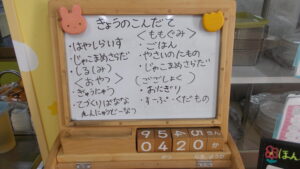 きょうのこんだて
・はやしらいす
・じゃこまめさらだ
・しる(みそ)
<おやつ>
・ぎゅうにゅう
・てづくりばなな
<ももぐみ>
・ごはん
・やさいのたもの
・じゃこまめさらだ
(ごごしょく)
・おにぎり
・すーぷ・くだもの
04 20
ほん